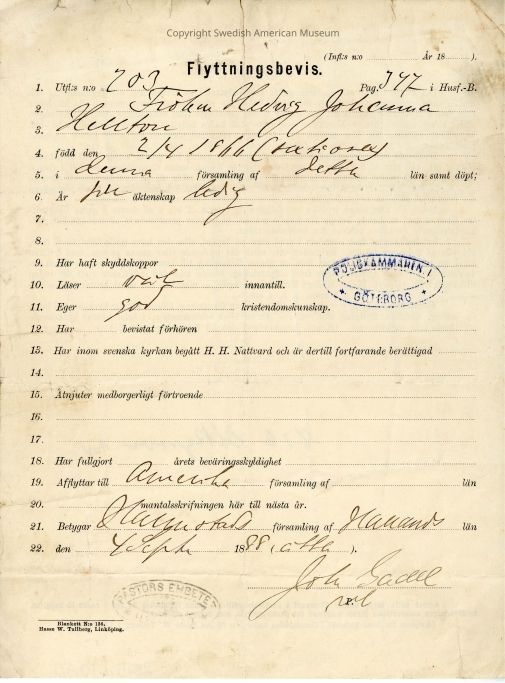 Copyright Swedish American Museum
(Infl:s n:o År 18 ).
Flyttningsbevis.
1. Utfl:s n:o 203 Pag: 347 i Husf.-B.
2. Fröken Hedvig Johanna
3. Hellton
4. född den 2/4 1866 (sextiosex)
5. i denna församling af detta län samt döpt;
6. Är för äktenskap ledig
7.
8.
9. Har haft skyddskoppor
10. Läser väl innantill.
11. Eger god kristendomskunskap.
12. Har bevistat förhören
13. Har inom svenska kyrkan begått H. H. Nattvard och är dertill fortfarande berättigad
14.
15. Åtnjuter medborgerligt förtroende
16.
17.
18. Har fullgjort årets beväringsskyldighet
19. Afflyttar till Amerika församling af län
20. mantalsskrifningen här till nästa år.
21. Betygar Halmstads församling af Hallands län
22. den 4 Sept 1888 (åtta ).
POLISKAMMAREN I
GÖTEBORG
PASTORS EMBETET
Joh
P.
Blankett N:o 134,
Hasse W. Tullberg, Linköping.